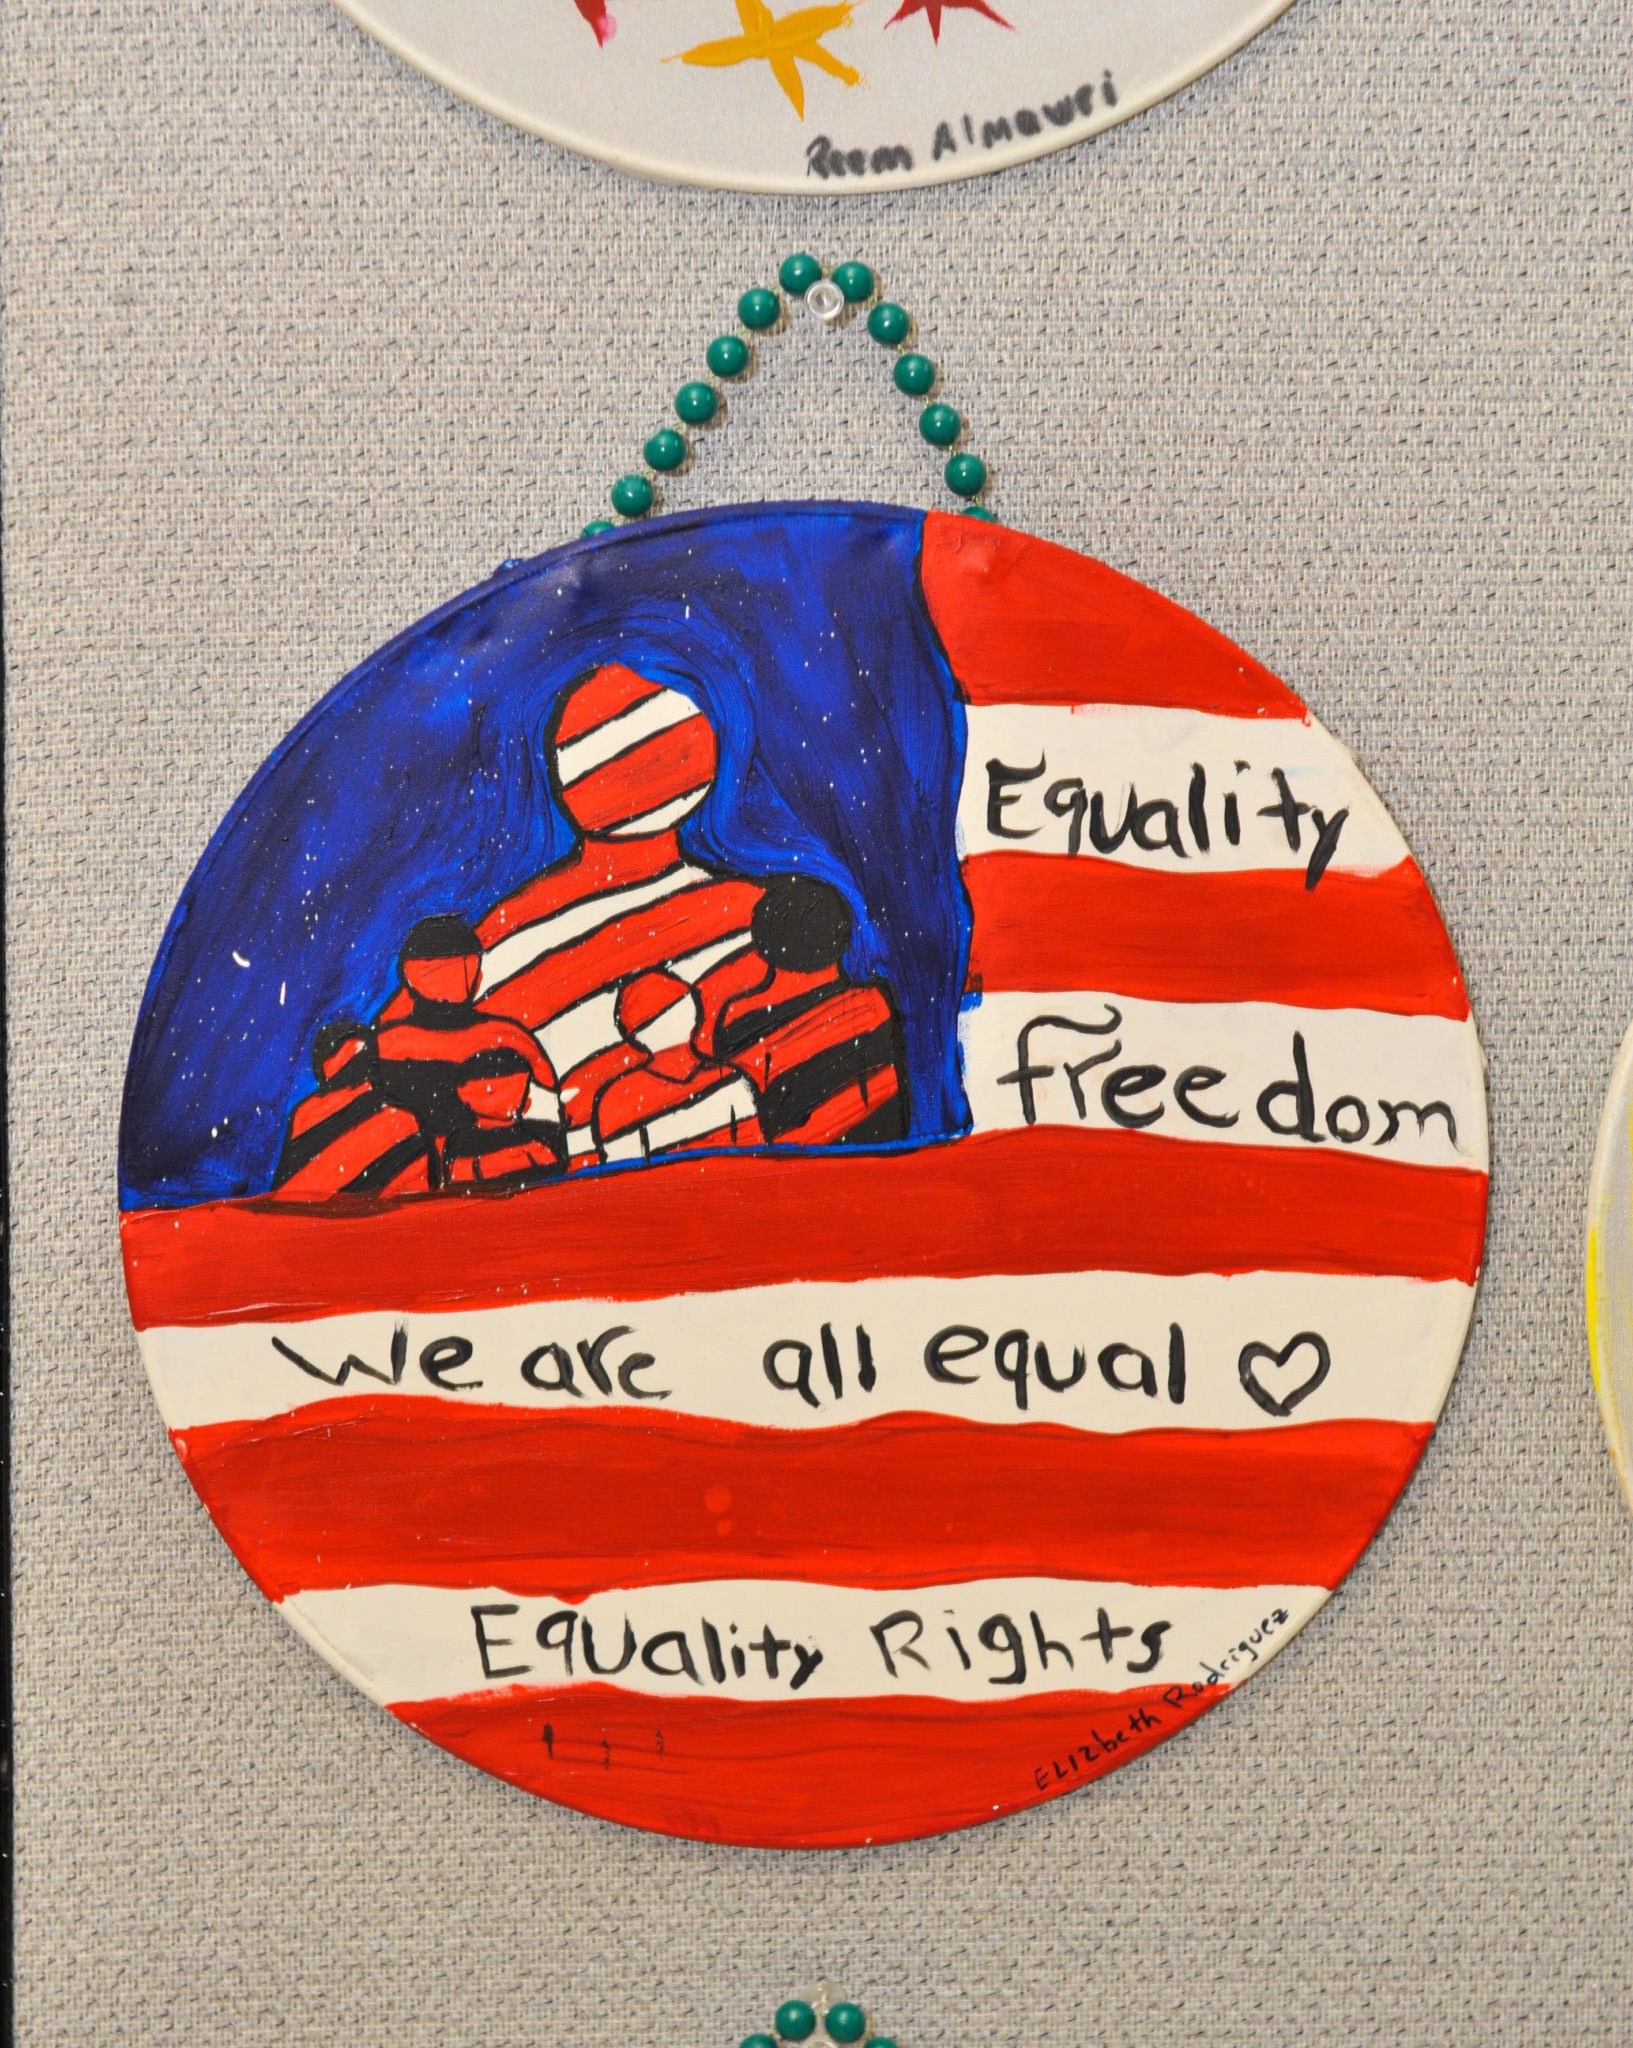 Reem Almawri
Equality
freedom
We are all equal
Equality Rights
ELIzbeth Rodriguez